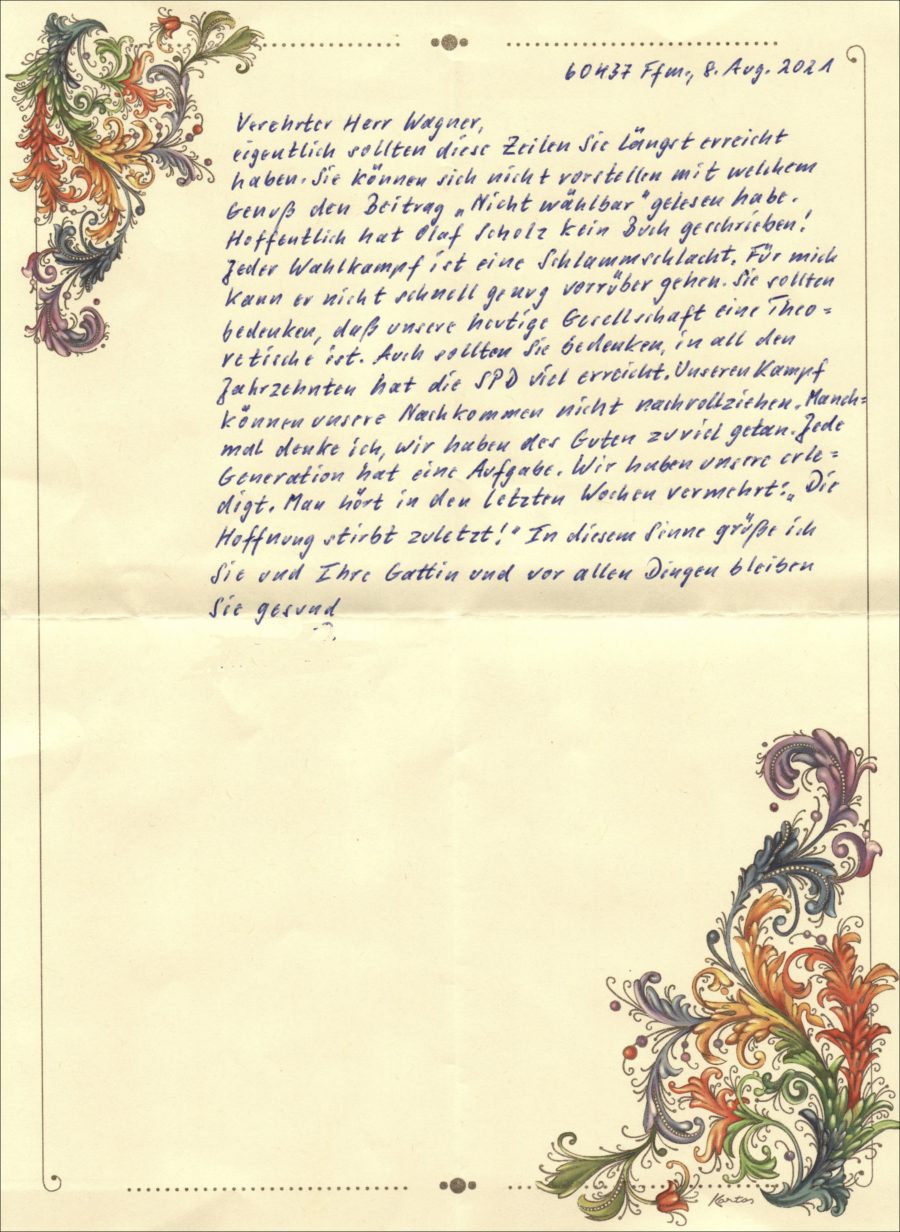 60437 Ffm., 8. Aug. 2021
Verehrter Herr Wagner,
eigentlich sollten diese Zeilen Sie längst erreicht
haben. Sie können sich nicht vorstellen mit welchem
Genuß den Beitrag „Nicht wählbar" gelesen habe.
Hoffentlich hat Olaf Scholz kein Buch geschrieben!
Jeder Wahlkampf ist eine Schlammschlacht. Für mich
kann er nicht schnell genug vorrüber gehen. Sie sollten
bedenken, daß unsere heutige Gesellschaft eine Theo=
retische ist. Auch sollten Sie bedenken, in all den
Jahrzehnten hat die SPD viel erreicht. Unseren Kampf
können unsere Nachkommen nicht nachvollziehen. Manch=
mal denke ich, wir haben des Guten zuviel getan. Jede
Generation hat eine Aufgabe. Wir haben unsere erle=
digt. Man hört in den letzten Wochen vermehrt: „Die
Hoffnung stirbt zuletzt!" In diesem Sinne grüße ich
Sie und Ihre Gattin und vor allen Dingen bleiben
Sie gesund
Kartos